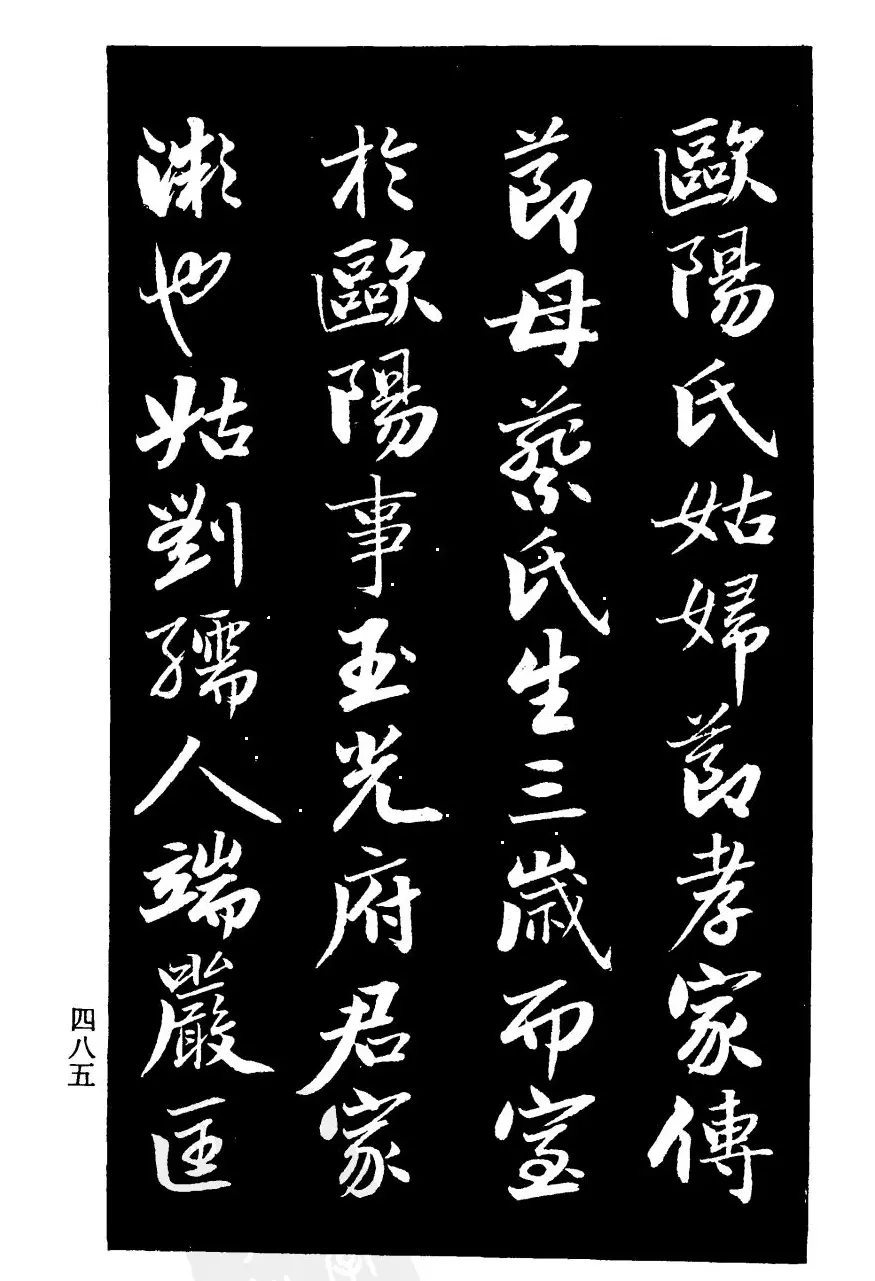 歐陽氏姑婦節孝家傳
節母蔡氏生三歲而室
於歐陽事玉光府君家
漱也姑劉孺人端嚴匡
四八五